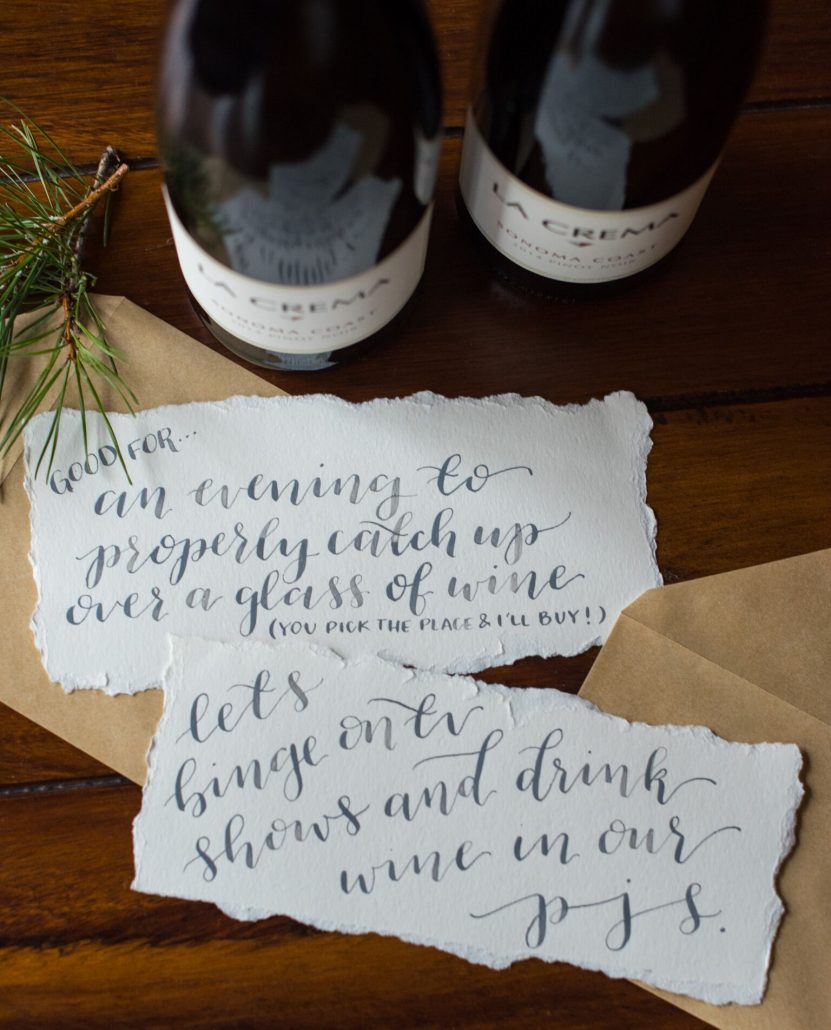 LA CREMA
SONOMA COAST
2014 PINOT NOIR
LA CREMA
SONOMA COAST
2014 PINOT NOIR
GOOD FOR...
an evening to
properly catch up
over a glass of wine
(YOU PICK THE PLACE & I'LL BUY!)
lets
binge on tv
shows and drink
wine in our
pjs.